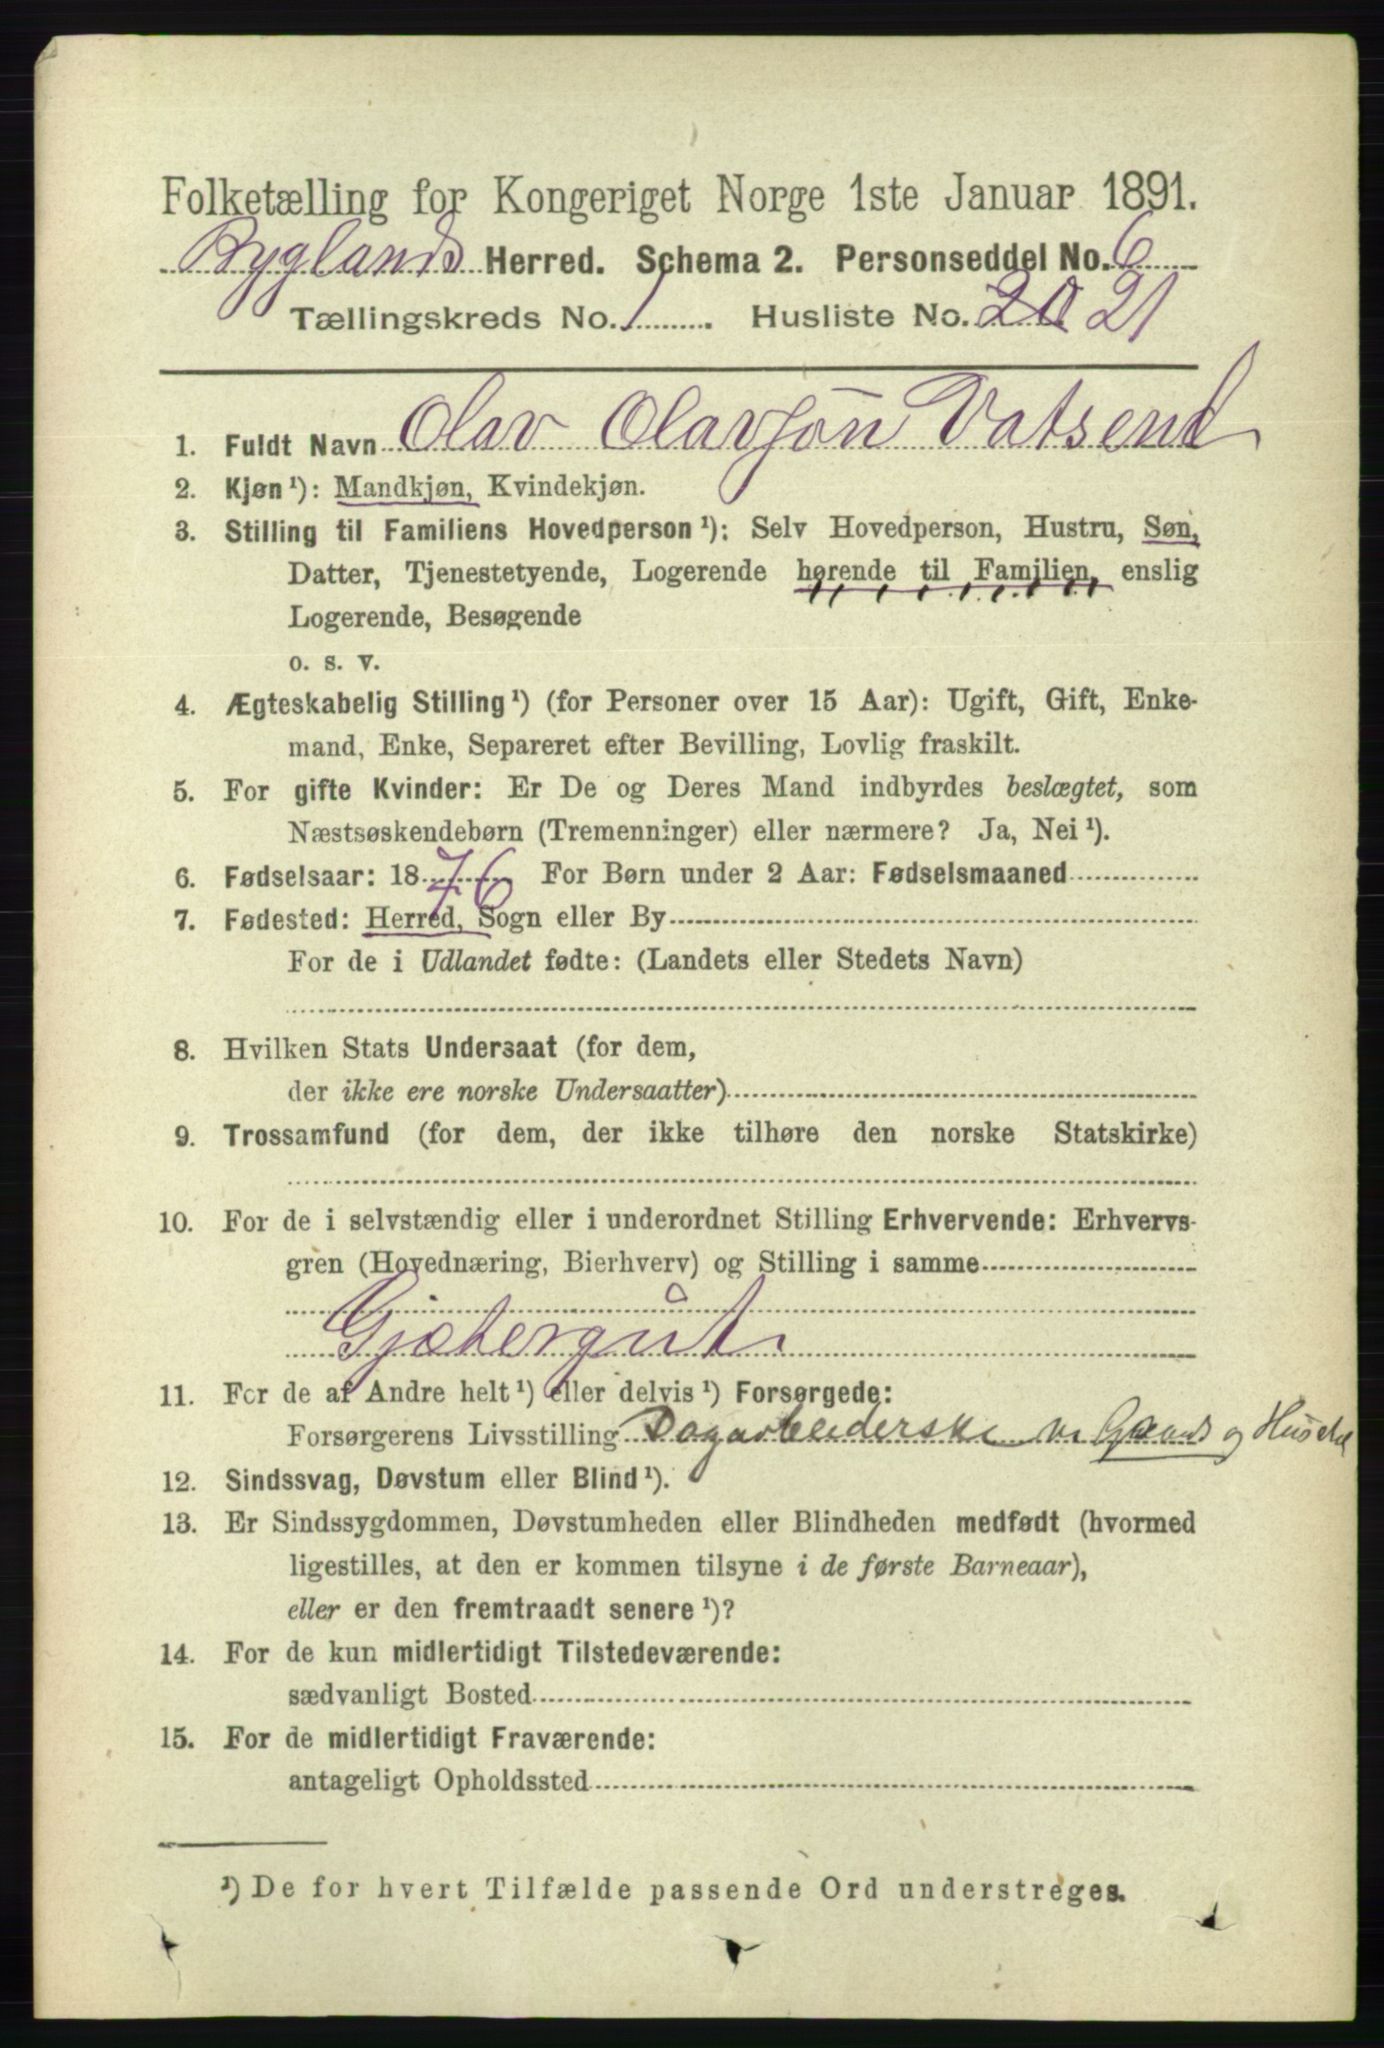 Folketælling for Kongeriget Norge 1ste Januar 1891.
Byglands Herred. Schema 2. Personseddel No. 6
Tællingskreds No. 1. Husliste No. 20 21
1. Fuldt Navn Olav Olavsøn Vatsend
2. Kjøn¹): Mandkjøn, Kvindekjøn.
3. Stilling til Familiens Hovedperson¹): Selv Hovedperson, Hustru, Søn,
Datter, Tjenestetyende, Logerende hørende til Familien, enslig
Logerende, Besøgende
o. s. v.
4. Ægteskabelig Stilling¹) (for Personer over 15 Aar): Ugift, Gift, Enke-
mand, Enke, Separeret efter Bevilling, Lovlig fraskilt.
5. For gifte Kvinder: Er De og Deres Mand indbyrdes beslægtet, som
Næstsøskendebørn (Tremenninger) eller nærmere? Ja, Nei¹).
6. Fødselsaar: 1876 For Børn under 2 Aar: Fødselsmaaned
7. Fødested: Herred, Sogn eller By
For de i Udlandet fødte: (Landets eller Stedets Navn)
8. Hvilken Stats Undersaat (for dem,
der ikke ere norske Undersaatter)
9. Trossamfund (for dem, der ikke tilhøre den norske Statskirke)
10. For de i selvstændig eller i underordnet Stilling Erhvervende: Erhvervs-
gren (Hovednæring, Bierhverv) og Stilling i samme
Gjætergut
11. For de af Andre helt¹) eller delvis¹) Forsørgede:
Forsørgerens Livsstilling Dagarbeiderske v. Gaards og Huus
12. Sindssvag, Døvstum eller Blind¹).
13. Er Sindssygdommen, Døvstumheden eller Blindheden medfødt (hvormed
ligestilles, at den er kommen tilsyne i de første Barneaar),
eller er den fremtraadt senere¹)?
14. For de kun midlertidigt Tilstedeværende:
sædvanligt Bosted
15. For de midlertidigt Fraværende:
antageligt Opholdssted
¹) De for hvert Tilfælde passende Ord understreges.